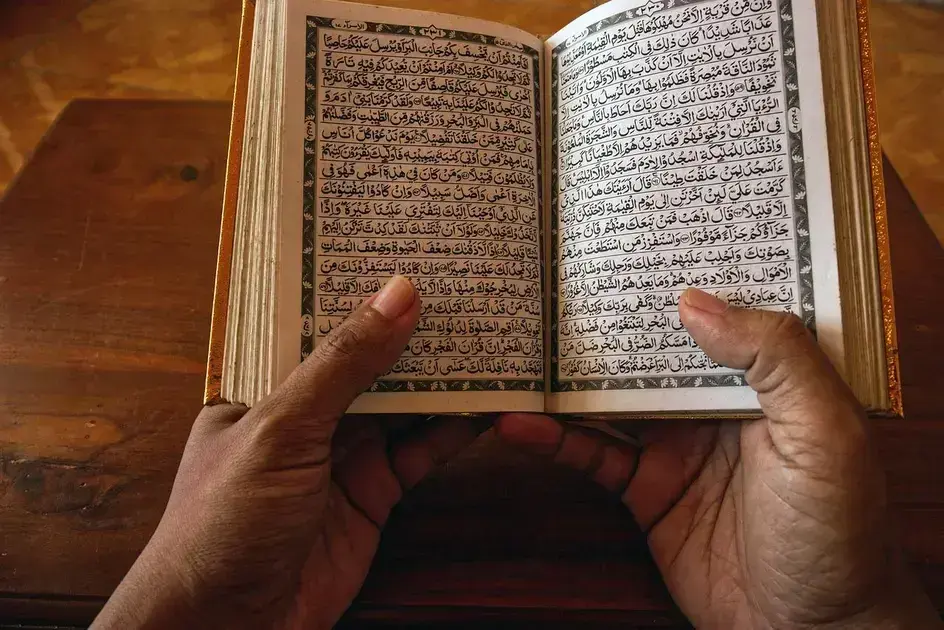 وَاِنْ مِّنْ قَرْيَةٍ اِلَّا نَحْنُ مُهْلِكُوْهَا قَبْلَ يَوْمِ الْقِيٰمَةِ اَوْ مُعَذِّبُوْهَا
عَذَابًا شَدِيْدًا كَانَ ذٰلِكَ فِى الْكِتٰبِ مَسْطُوْرًا وَمَا مَنَعَنَا
اَنْ نُّرْسِلَ بِالْاٰيٰتِ اِلَّا اَنْ كَذَّبَ بِهَا الْاَوَّلُوْنَ وَاٰتَيْنَا
ثَمُوْدَ النَّاقَةَ مُبْصِرَةً فَظَلَمُوْا بِهَا وَمَا نُرْسِلُ بِالْاٰيٰتِ اِلَّا
تَخْوِيْفًا وَاِذْ قُلْنَا لَكَ اِنَّ رَبَّكَ اَحَاطَ بِالنَّاسِ وَمَا جَعَلْنَا
الرُّءْيَا الَّتِىْ اَرَيْنٰكَ اِلَّا فِتْنَةً لِّلنَّاسِ وَالشَّجَرَةَ الْمَلْعُوْنَةَ
فِى الْقُرْاٰنِ وَنُخَوِّفُهُمْ فَمَا يَزِيْدُهُمْ اِلَّا طُغْيَانًا كَبِيْرًا
وَاِذْ قُلْنَا لِلْمَلٰٓئِكَةِ اسْجُدُوْا لِاٰدَمَ فَسَجَدُوْا اِلَّا اِبْلِيْسَ قَالَ
ءَاَسْجُدُ لِمَنْ خَلَقْتَ طِيْنًا قَالَ اَرَءَيْتَكَ هٰذَا الَّذِىْ
كَرَّمْتَ عَلَىَّ لَئِنْ اَخَّرْتَنِ اِلٰى يَوْمِ الْقِيٰمَةِ لَاَحْتَنِكَنَّ ذُرِّيَّتَهٗ
اِلَّا قَلِيْلًا قَالَ اذْهَبْ فَمَنْ تَبِعَكَ مِنْهُمْ فَاِنَّ جَهَنَّمَ
جَزَآؤُكُمْ جَزَآءً مَّوْفُوْرًا وَاسْتَفْزِزْ مَنِ اسْتَطَعْتَ مِنْهُمْ
بِصَوْتِكَ وَاَجْلِبْ عَلَيْهِمْ بِخَيْلِكَ وَرَجِلِكَ وَشَارِكْهُمْ فِى
الْاَمْوَالِ وَالْاَوْلَادِ وَعِدْهُمْ وَمَا يَعِدُهُمُ الشَّيْطٰنُ اِلَّا غُرُوْرًا
اِنَّ عِبَادِىْ لَيْسَ سُلْطٰنٌ وَكَفٰى بِرَبِّكَ وَكِيْلًا رَبُّكُمُ
فِى الْبَحْرِ لِتَبْتَغُوْا مِنْ فَضْلِهٖ اِنَّهٗ
مَسَّكُمُ الضُّرُّ فِى الْبَحْرِ ضَلَّ مَنْ
نَجّٰىكُمْ اِلَى الْبَرِّ اَعْرَضْتُمْ وَكَانَ الْاِنْسَانُ كَفُوْرًا
اَفَاَمِنْتُمْ اَنْ يَّخْسِفَ بِكُمْ جَانِبَ الْبَرِّ اَوْ يُرْسِلَ عَلَيْكُمْ حَاصِبًا
ثُمَّ لَا تَجِدُوْا لَكُمْ وَكِيْلًا اَمْ اَمِنْتُمْ اَنْ يُّعِيْدَكُمْ فِيْهِ تَارَةً
اُخْرٰى فَيُرْسِلَ عَلَيْكُمْ قَاصِفًا مِّنَ الرِّيْحِ فَيُغْرِقَكُمْ بِمَا كَفَرْتُمْ
ثُمَّ لَا تَجِدُوْا لَكُمْ عَلَيْنَا بِهٖ تَبِيْعًا وَلَقَدْ كَرَّمْنَا بَنِىْٓ اٰدَمَ
وَحَمَلْنٰهُمْ فِى الْبَرِّ وَالْبَحْرِ وَرَزَقْنٰهُمْ مِّنَ الطَّيِّبٰتِ وَفَضَّلْنٰهُمْ
عَلٰى كَثِيْرٍ مِّمَّنْ خَلَقْنَا تَفْضِيْلًا يَوْمَ نَدْعُوْا كُلَّ اُنَاسٍ
بِاِمَامِهِمْ فَمَنْ اُوْتِىَ كِتٰبَهٗ بِيَمِيْنِهٖ فَاُولٰٓئِكَ يَقْرَءُوْنَ كِتٰبَهُمْ
وَلَا يُظْلَمُوْنَ فَتِيْلًا وَمَنْ كَانَ فِىْ هٰذِهٖٓ اَعْمٰى فَهُوَ فِى
الْاٰخِرَةِ اَعْمٰى وَاَضَلُّ سَبِيْلًا وَاِنْ كَادُوْا لَيَفْتِنُوْنَكَ
عَنِ الَّذِىْٓ اَوْحَيْنَآ اِلَيْكَ لِتَفْتَرِىَ عَلَيْنَا غَيْرَهٗ وَاِذًا
لَّاتَّخَذُوْكَ خَلِيْلًا وَلَوْلَآ اَنْ ثَبَّتْنٰكَ لَقَدْ كِدْتَّ تَرْكَنُ اِلَيْهِمْ
شَيْئًا قَلِيْلًا اِذًا لَّاَذَقْنٰكَ ضِعْفَ الْحَيٰوةِ وَضِعْفَ الْمَمَاتِ
ثُمَّ لَا تَجِدُ لَكَ عَلَيْنَا نَصِيْرًا وَاِنْ كَادُوْا لَيَسْتَفِزُّوْنَكَ مِنَ
الْاَرْضِ لِيُخْرِجُوْكَ مِنْهَا وَاِذًا خِلٰفَكَ اِلَّا قَلِيْلًا
سُنَّةَ مَنْ قَدْ اَرْسَلْنَا قَبْلَكَ لِسُنَّتِنَا
اَقِمِ الصَّلٰوةَ لِدُلُوْكِ الشَّمْسِ
وَقُرْاٰنَ الْفَجْرِ اِنَّ قُرْاٰنَ الْفَجْرِ كَانَ
فَتَهَجَّدْ بِهٖ نَافِلَةً لَّكَ عَسٰٓى اَنْ يَّبْعَثَكَ